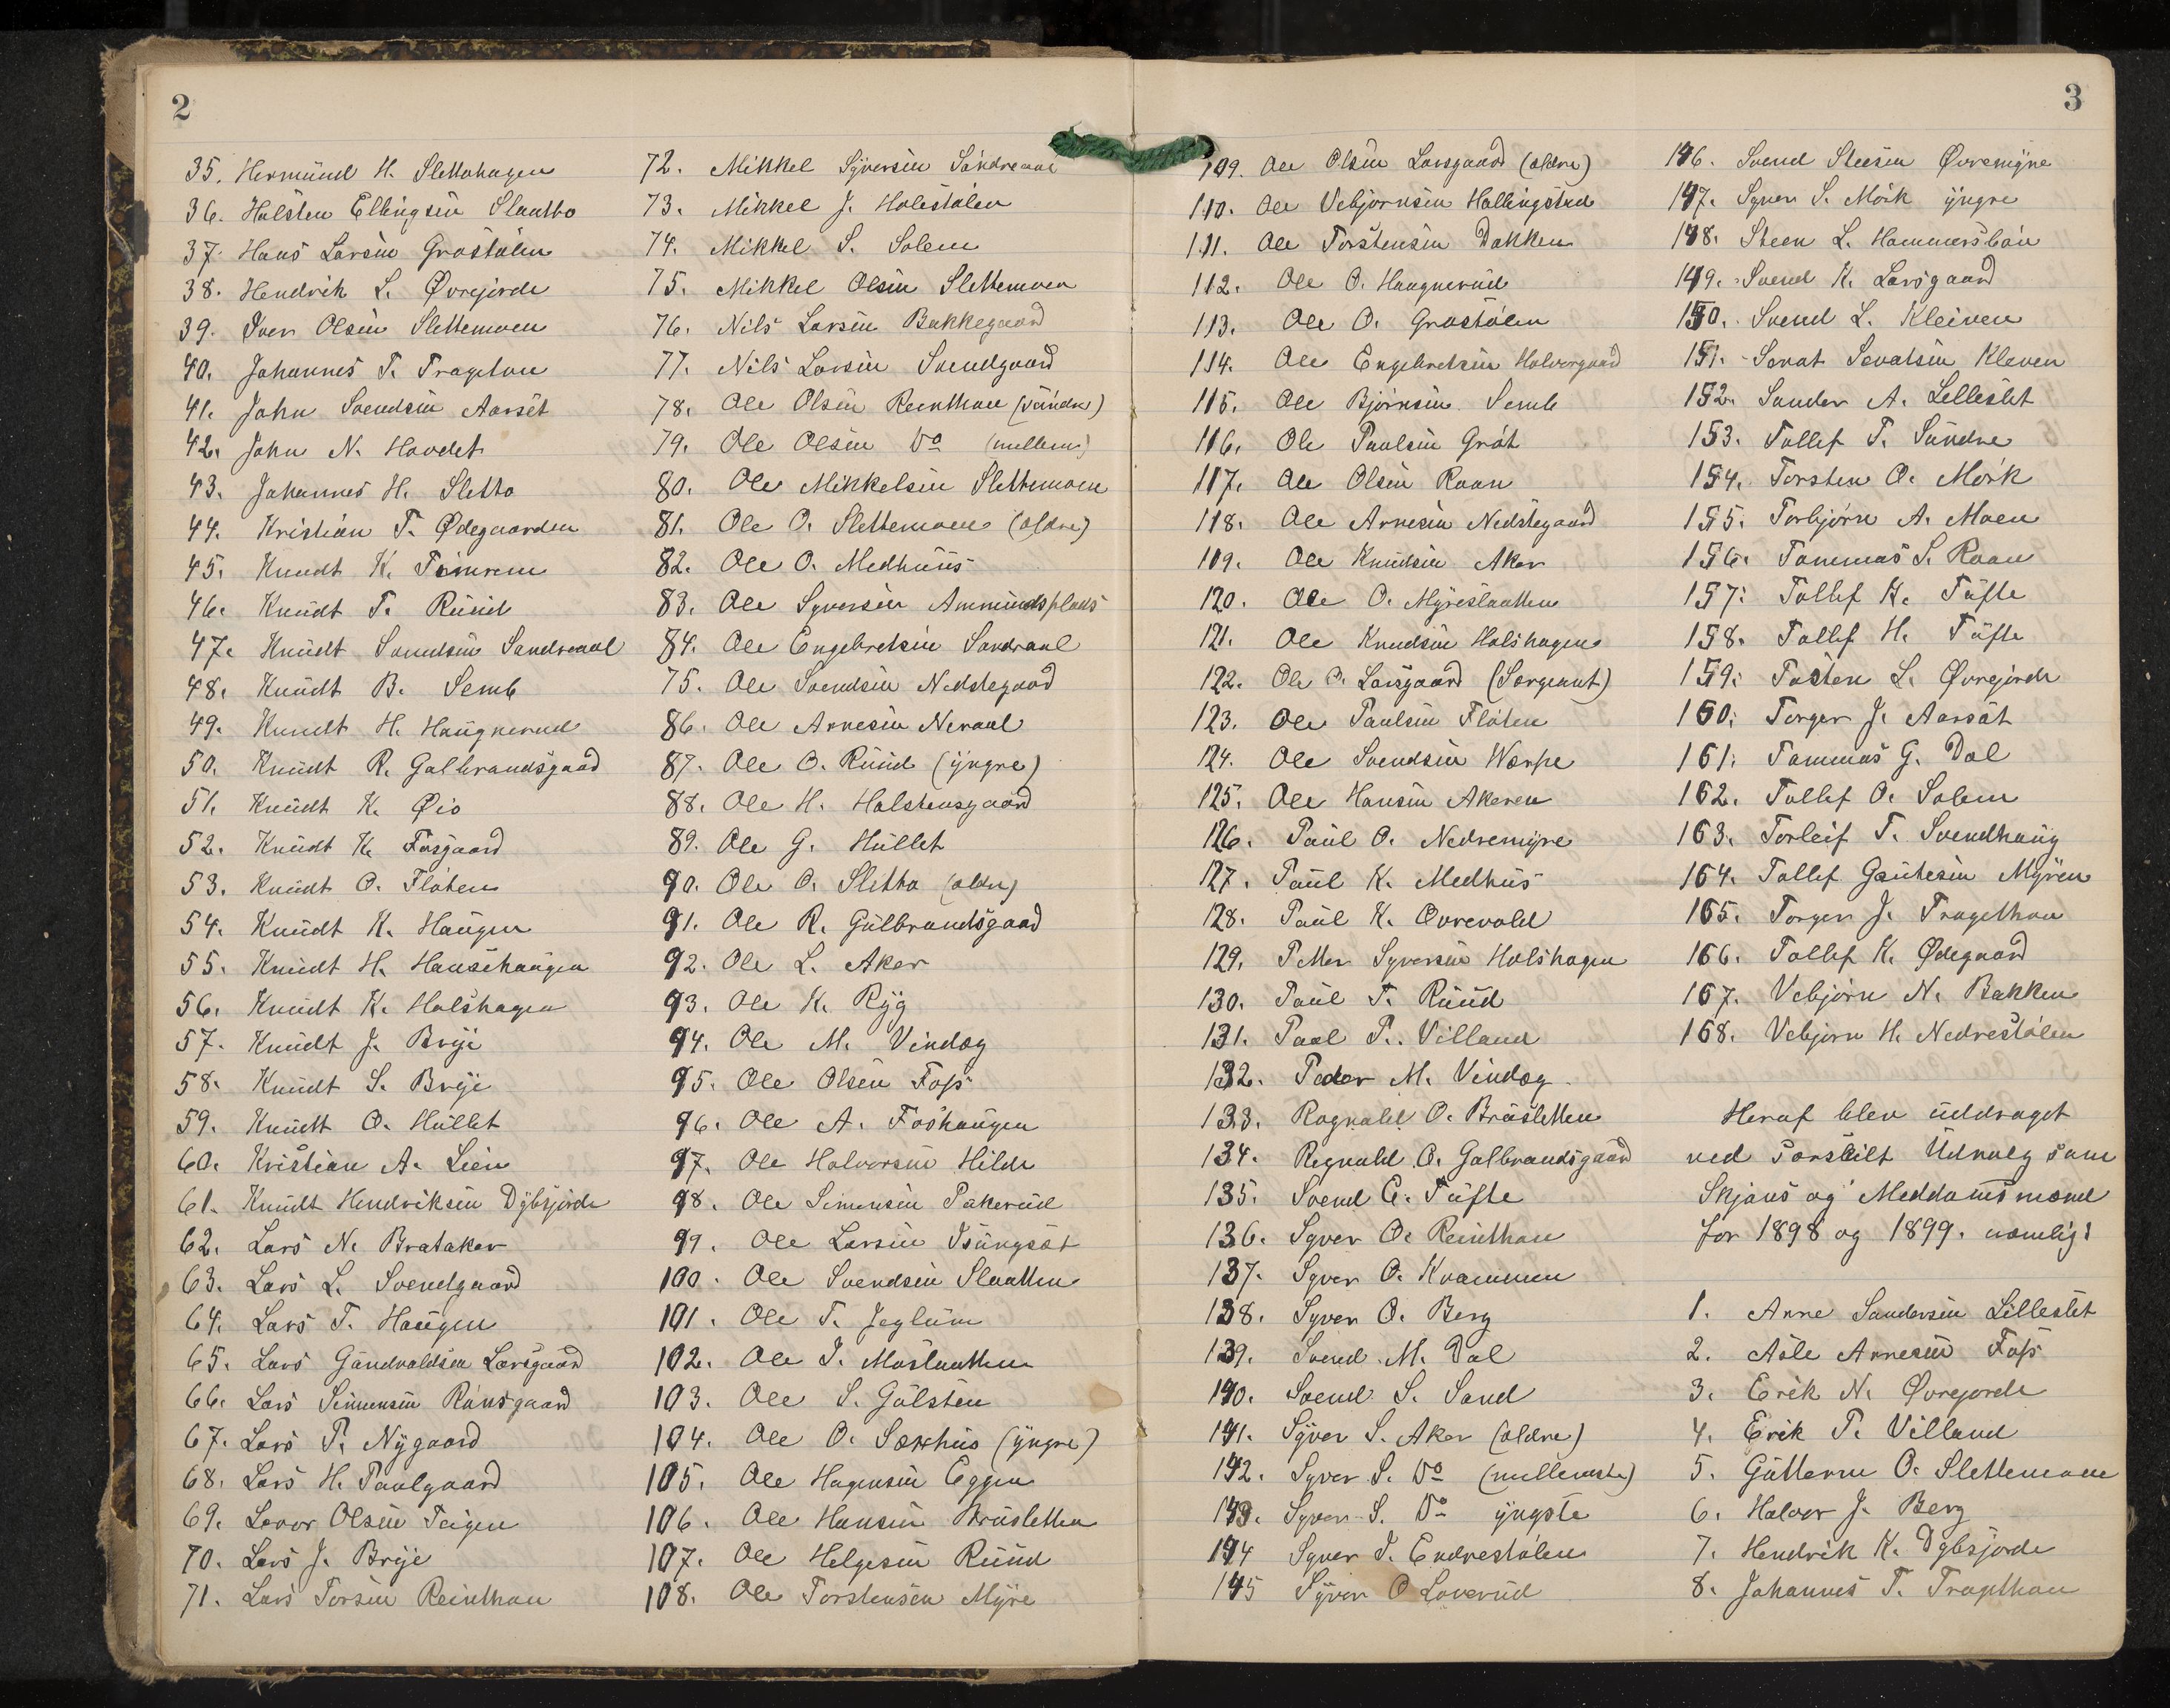 2
35. Hermund H. Slettohagen
36. Halsten Ellingsen Slaatto
37. Hans Larsen Grøstølen
38. Hendrik L. Øvrejorde
39. Iver Olsen Slettemoen
40. Johannes T. Trageton
41. John Svendsen Aarset
42. John N. Hovdet
43. Johannes H. Sletto
44. Kristian T. Ødegaarden
45. Knudt K.
46. Knudt T. Ruud
47. Knudt Svendsen Sandreaal
48. Knudt B. Semb
49. Knudt H. Haugnerud
50. Knudt R. Gulbrandsgaard
51. Knudt K. Øio
52. Knudt K. Fosgaard
53. Knudt O. Fløten
54. Knudt K. Haugen
55. Knudt H. Hansehaugen
56. Knudt K. Holshagen
57. Knudt J. Brye
58. Knudt S. Brye
59. Knudt O. Hullet
60. Kristian A. Lien
61. Knudt Hendriksen Dybsjorde
62. Lars N. Brataker
63. Lars L. Svendgaard
64. Lars T. Haugen
65. Lars Gundvaldsen Larsgaard
66. Lars Simensen Rønsgaard
67. Lars P. Nygaard
68. Lars H. Paulgaard
69. Levor Olsen Teigen
70. Lars J. Brye
71. Lars Torsen Reinthon
72. Mikkel Syversen Søndreaal
73. Mikkel J. Holestølen
74. Mikkel S. Solem
75. Mikkel Olsen Slettemoen
76. Nils Larsen Bakkegaard
77. Nils Larsen Svendgaard
78. Ole Olsen Reinthon (søndre)
79. Ole Olsen Do (mellem)
80. Ole Mikkelsen Slettemoen
81. Ole O. Slettemoen (ældre)
82. Ole O. Medhuus
83. Ole Syversen Ammundsplads
84. Ole Engebretsen Sandraal
75. Ole Svendsen Nedstegaard
86. Ole Arnesen Neraal
87. Ole O. Ruud (yngre)
88. Ole H. Halstensgaard
89. Ole G. Hullet
90. Ole O. Sletto (ældre)
91. Ole R. Gulbrandsgaard
92. Ole L. Aker
93. Ole K. Ryg
94. Ole M. Vindæg
95. Ole Olsen Foss
96. Ole A. Foshaugen
97. Ole Halvorsen Hilde
98. Ole Simensen Pakerud
99. Ole Larsen Isungsæt
100. Ole Svendsen Slaatten
101. Ole T. Jeglum
102. Ole I. Moslaatten
103. Ole S. Gulsten
104. Ole O. Sæxhus (yngre)
105. Ole Hagensen Eggen
106. Ole Hansen Brusletten
107. Ole Helgesen Ruud
108. Ole Torstensen Myre
3
109. Ole Olsen Larsgaard (ældre)
110. Ole Vebjørnsen Hallingstad
111. Ole Torstensen Bakken
112. Ole O. Haugnerud
113. Ole O. Grøstølen
114. Ole Engebretsen Halvorgaard
115. Ole Bjørnsen Semb
116. Ole Paulsen Grøt
117. Ole Olsen Raan
118. Ole Arnesen Nedstegaard
119. Ole Knudsen Aker
120. Ole O. Myreslaatten
121. Ole Knudsen Holshagen
122. Ole O. Larsgaard (Sergeant)
123. Ole Paulsen Fløten
124. Ole Svendsen Werpe
125. Ole Hansen Akeren
126. Paul O. Nedremyre
127. Paul K. Medhus
128. Paul K. Øvrevold
129. Petter Syversen Holshagen
130. Paul T. Ruud
131. Paal P. Villand
132. Peder M. Vindæg
133. Rognald O. Brusletten
134. Regnald O. Gulbrandsgaard
135. Svend E. Tufte
136. Syver O. Reinthon
137. Syver O. Kvammen
138. Syver O. Berg
139. Svend M. Dal
140. Svend S. Sand
141. Syver S. Aker (ældre)
142. Syver S. Do (mellemste)
143. Syver S. Do yngste
144 Syver I. Endrestølen
145 Syver O Loverud
146. Svend Steesen Øvremyre
147. Syver S. Mørk yngre
148. Steen L. Hammersbøen
149. Svend K. Larsgaard
150. Svend L. Kleiven
151. Sevat Sevatsen Kleven
152. Sander A. Lilleslet
153. Tollef T. Sundre
154. Torsten O. Mørk
155. Torbjørn A. Moen
156. Tommas S. Raan
157. Tollef K. Tufte
158. Tollef H. Tufte
159. Tosten L. Øvrejorde
160. Torger J. Aarsæt
161. Tommas G. Dal
162. Tollef O. Solem
163. Torleif T. Svendhaug
164. Tollef Gautesen Myren
165. Torger J. Tragethon
166. Tollef K. Ødegaard
167. Vebjørn N. Bakken
168. Vebjørn H. Nedrestølen
Heraf blev uddraget
ved særskilt Udvalg som
Skjøns og Meddomsmænd
for 1898 og 1899. nemlig:
1. Arne Sandersen Lilleslet
2. Asle Arnesen Foss
3. Erik N. Øvrejorde
4. Erik T. Villand
5. Guttorm O. Slettemoen
6. Halvor J. Berg
7. Hendrik K. Dybsjorde
8. Johannes T. Tragethon